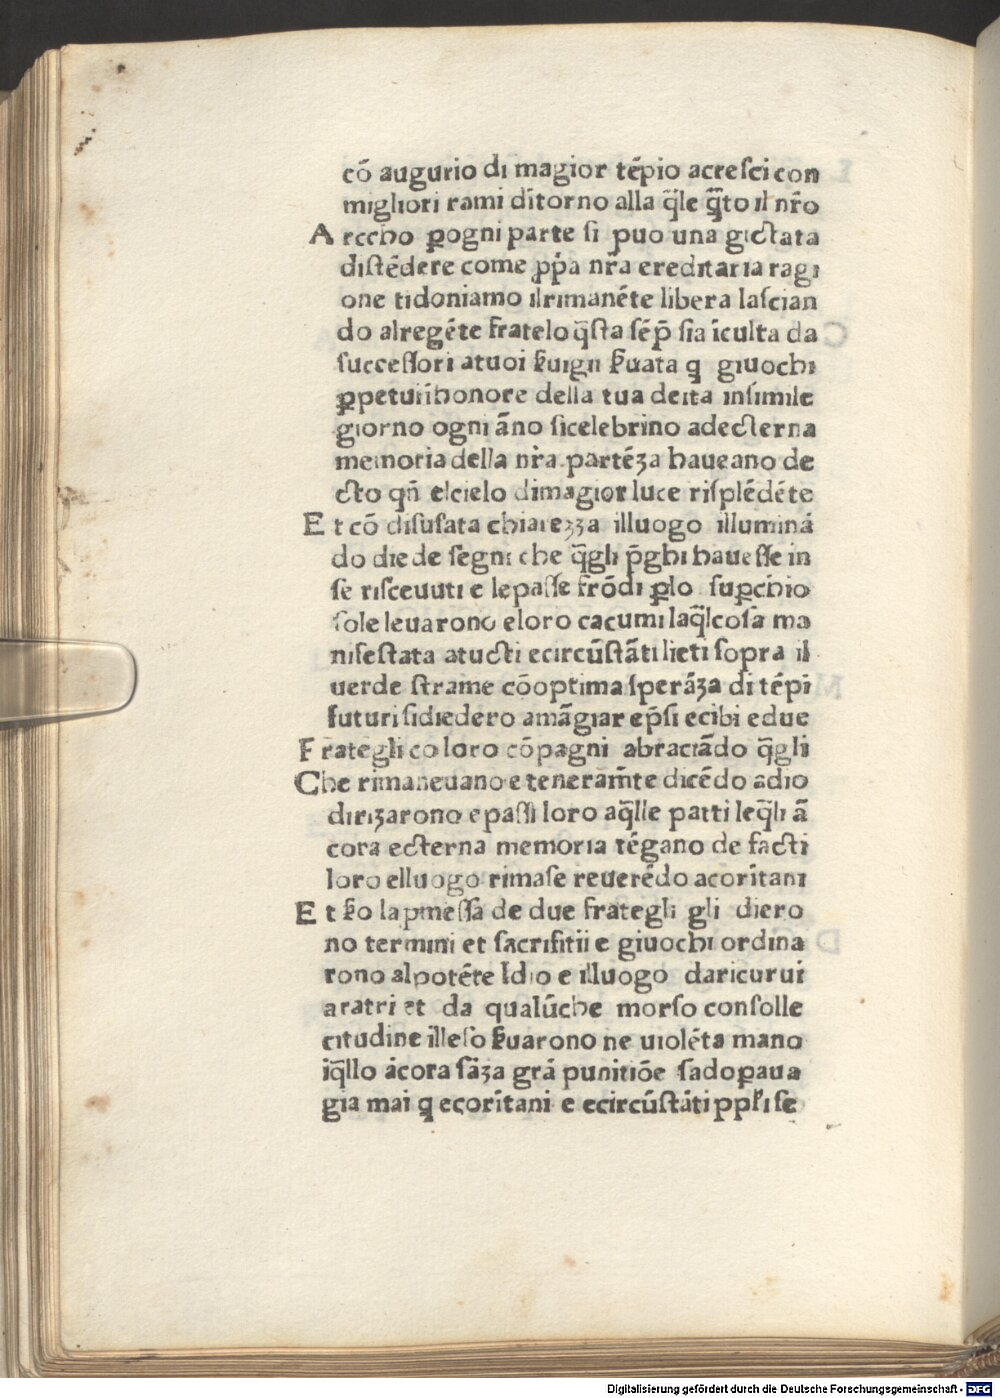 cō augurio di magior tēpio acreſci con
migliori rami dītorno alla q̄le q̄to il nr̄o
Arccho ꝑogni parte ſi puo una gictata
diſtēdere come ꝓp̄a nr̄a ereditaria ragi
one tidoniamo ilrimanēte libera laſcian
do alregēte fratelo q̄ſta ſēp̄ ſia īculta da
ſucceſſori atuoi ẜuigii ẜuata q̄ giuochi
ꝑpetui īhonore della tua deita inſimile
giorno ogni āno ſicelebrino adecterna
memoria della nr̄a partēza haueano de
cto qn̄ elcielo dimagior luce riſplēdēte
Et cō diſuſata chiarezza illuogo illuminā
do diede ſegni che q̄gli p̄ghi haueſſe in
ſe riſceuuti e lepaſſe frōdi ꝑlo ſuꝑchio
ſole leuarono eloro cacumi laq̄lcoſa ma
nifeſtata atucti ecircūſtāti lieti ſopra il
uerde ſtrame cōoptima ſperāza di tēpi
futuri ſidiedero amāgiar ep̄ſi ecibi e due
Frategli co loro cōpagni abraciādo q̄gli
Che rimaneuano e teneram̄te dicēdo adio
dirizarono epaſſi loro aq̄lle parti leq̄li ā
cora ecterna memoria tēgano de facti
loro elluogo rimaſe reuerēdo acorītani
Et ẜo lapmeſſa de due frategli gli diero
no termini et ſacrifitii e giuochi ordina
rono alpotēte Idio e illuogo daricurui
aratri et da qualūche morſo conſolle
citudine illeſo ẜuarono ne uiolēta mano
iq̄llo ācora ſāza grā punitiōe ſadoꝑaua
gia mai q̄ ecorītani e ecircūſtāti ppl̄i ſe
Digitalisierung gefördert durch die Deutsche Forschungsgemeinschaft - DFG